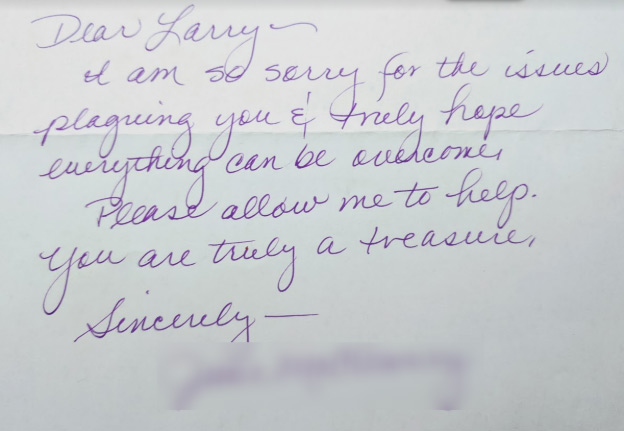 Dear Larry—
I am so sorry for the issues
plaguing you & truely hope
everything can be overcome,
Please allow me to help.
You are truely a treasure,
Sincerely—